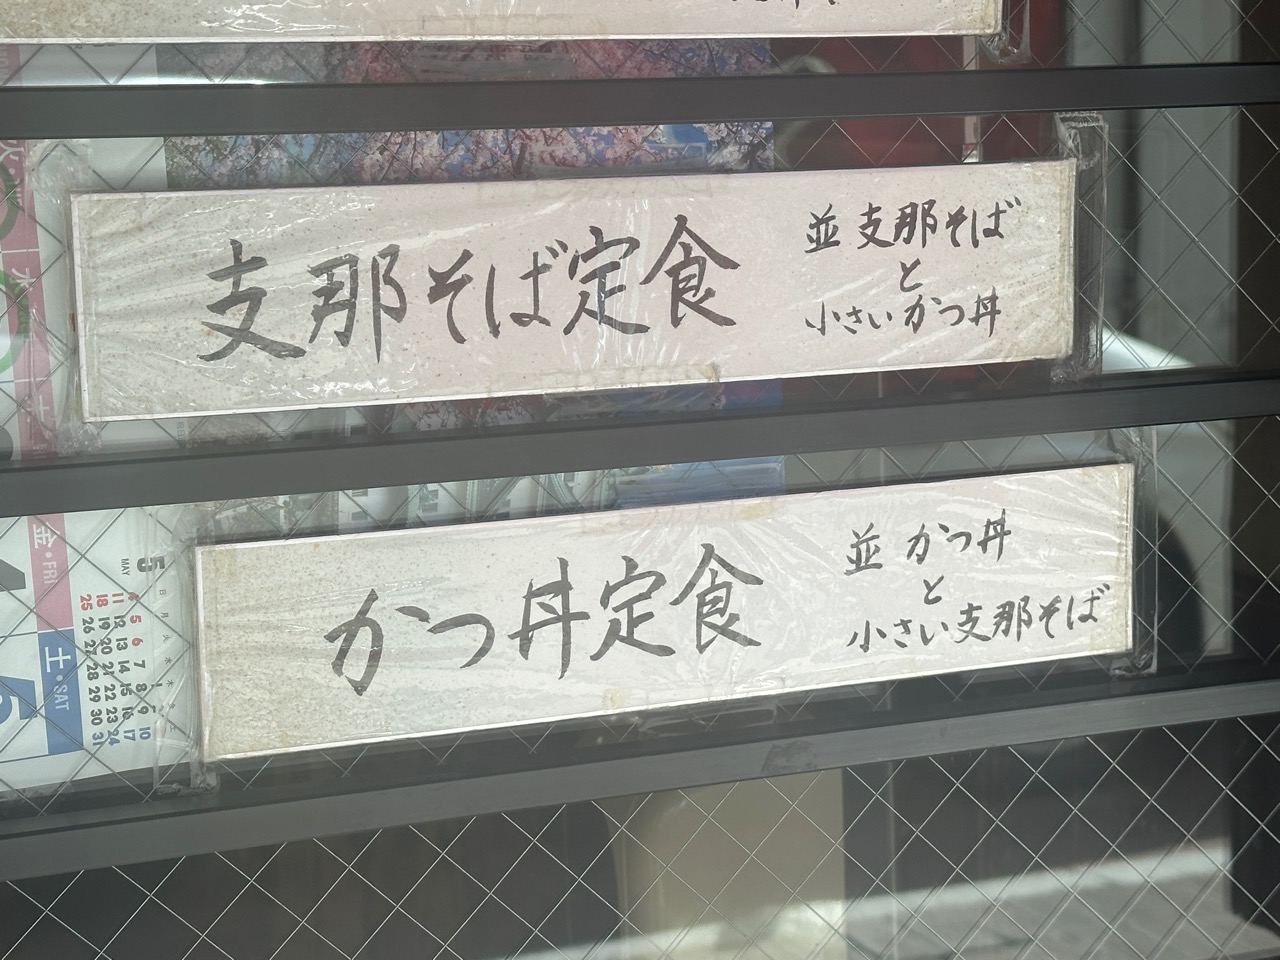 支那そば定食
並 支那そば
と
小さいかつ丼
かつ丼定食
並 かつ丼
と
小さい支那そば
金・FRI
土・SAT
5
MAY
日 月 火 水 木 金 土
1 2 3
4 5 6 7 8 9 10
11 12 13 14 15 16 17
18 19 20 21 22 23 24
25 26 27 28 29 30 31